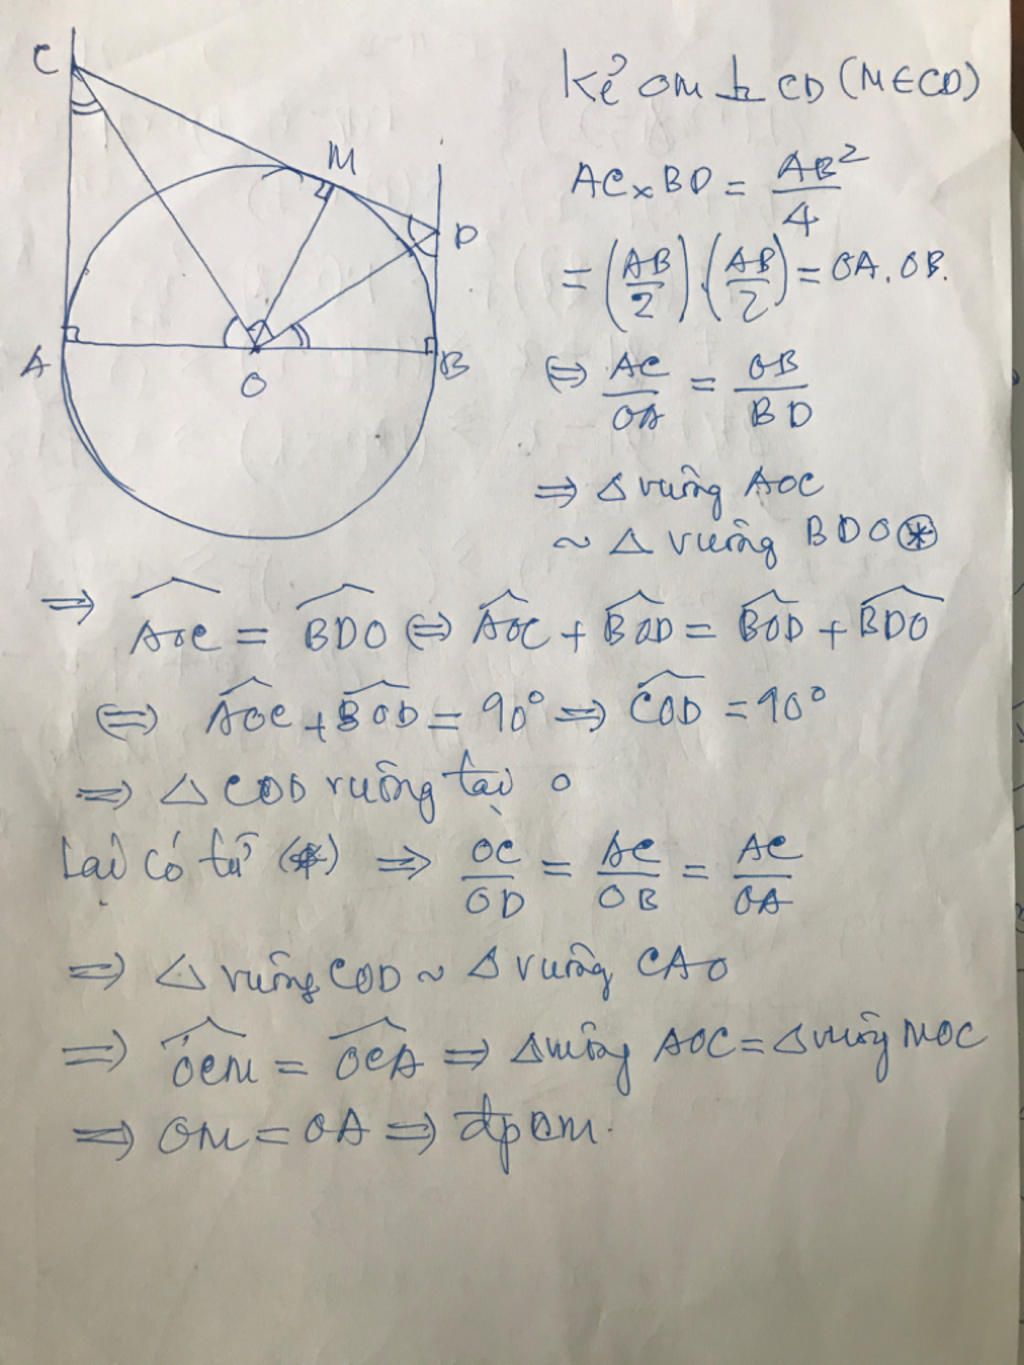 C
M
D
A
O
B
Kẻ OM ⊥ CD (M ∈ CD)
AC × BD = AB²/4
= (AB/2).(AB/2) = OA.OB.
⇔ AC/OA = OB/BD
⇒ Δ vuông AOC
~ Δ vuông BDO (*)
⇒ ∠AOC = ∠BDO ⇔ ∠AOC + ∠BOD = ∠BOD + ∠BDO
⇔ ∠AOC + ∠BOD = 90° ⇒ ∠COD = 90°
⇒ Δ COD vuông tại O
Lại có từ (*) ⇒ OC/OD = AC/OB = AC/OA
⇒ Δ vuông COD ~ Δ vuông CAO
⇒ ∠OCM = ∠OCA ⇒ Δ vuông AOC = Δ vuông MOC
⇒ OM = OA ⇒ đpcm.